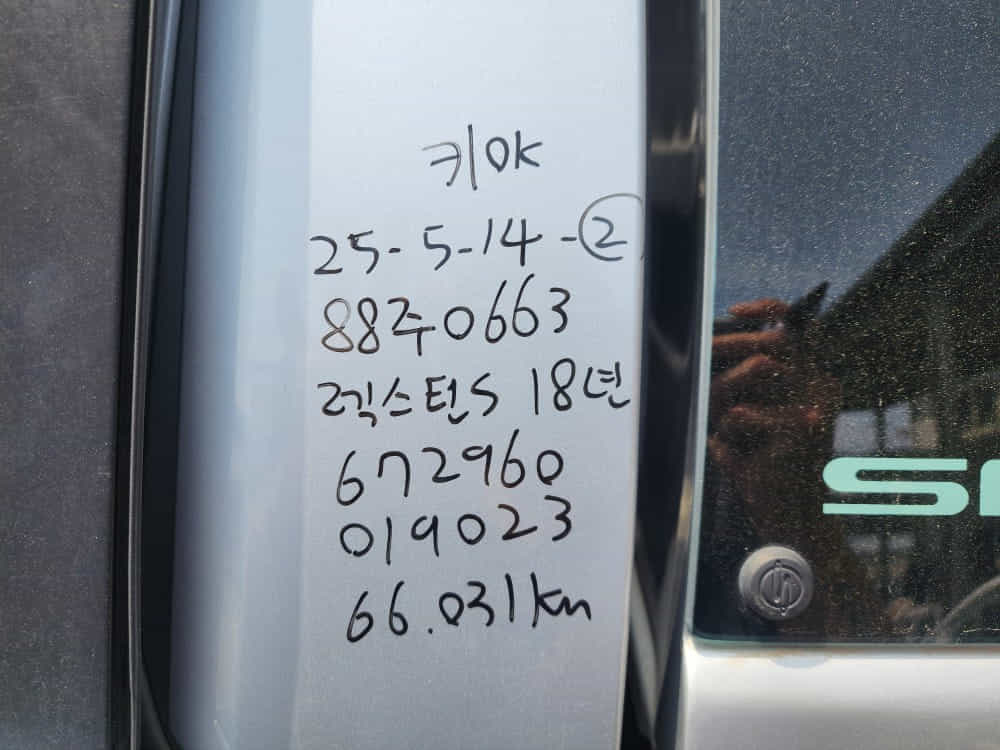 키OK
25-5-14-②
88주0663
렉스턴S 18년
672960
019023
66.031km
S